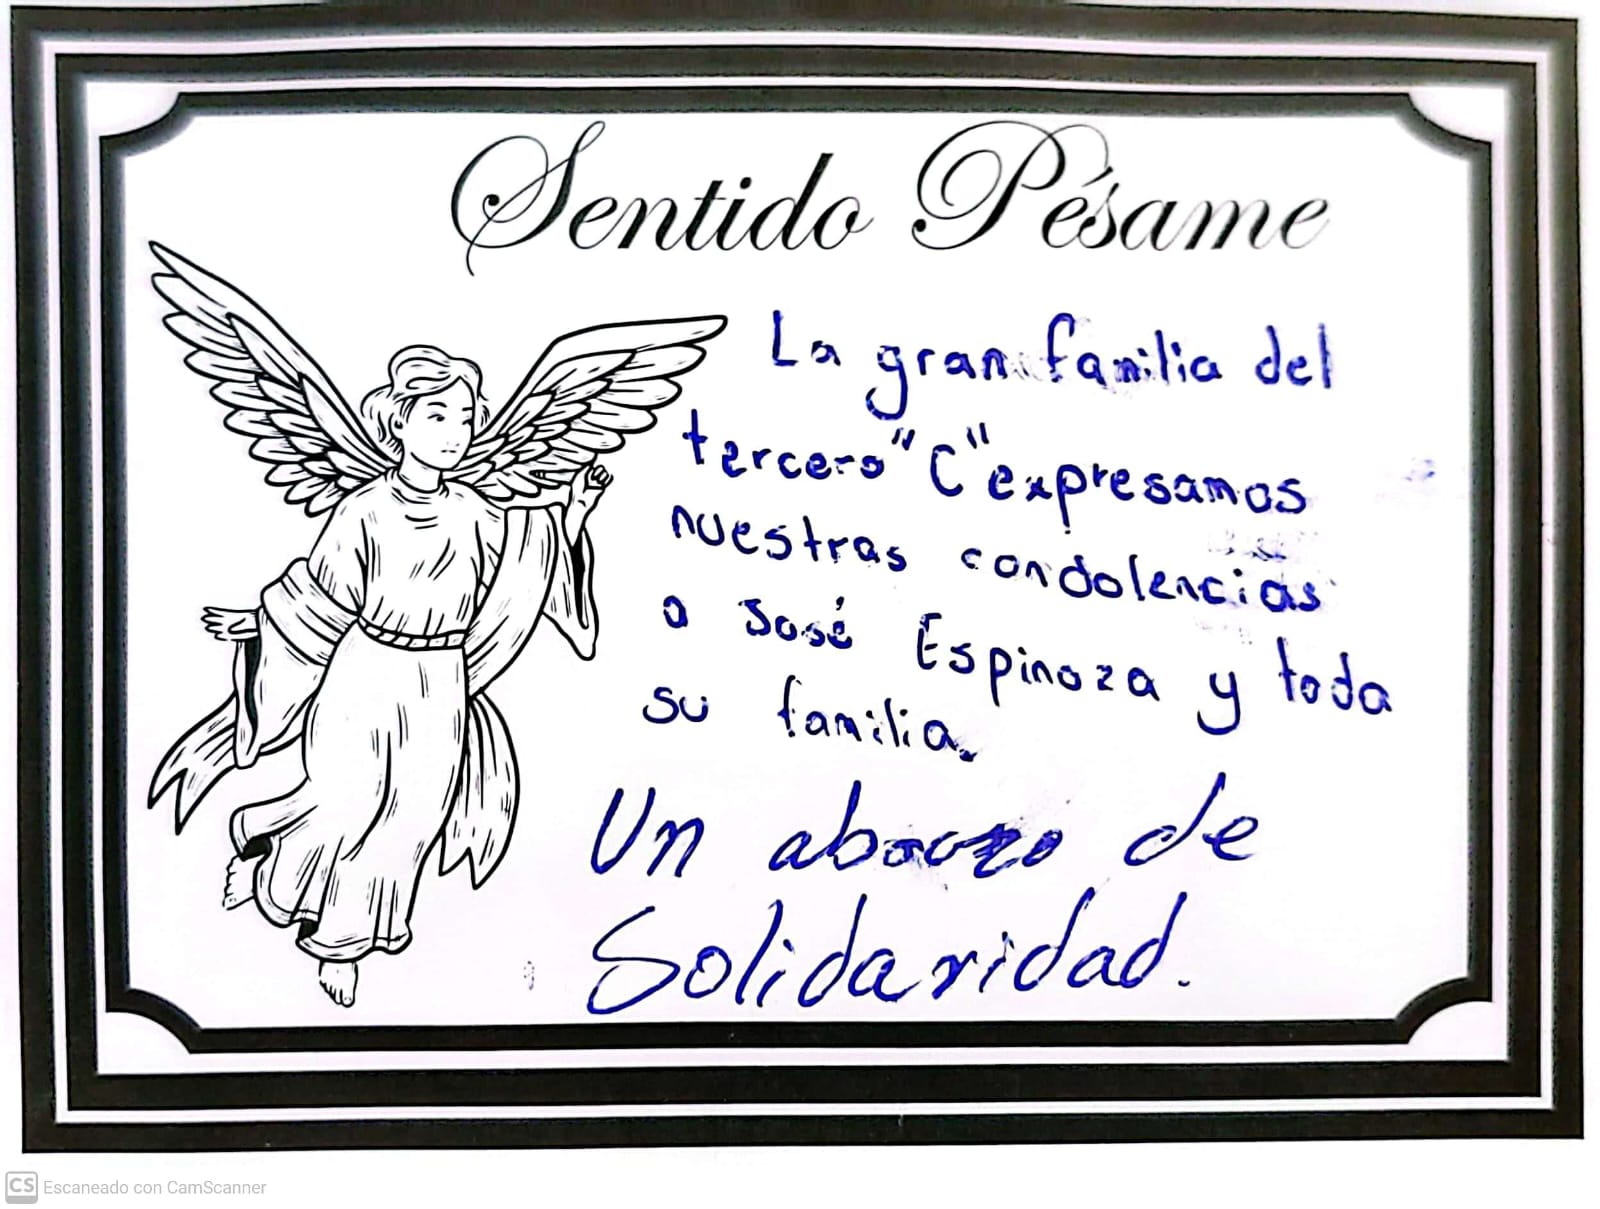 Sentido Pésame
La gran familia del
tercero "C" expresamos
nuestras condolencias
a José Espinoza y toda
su familia.
Un abrazo de
Solidaridad.
CS Escaneado con CamScanner